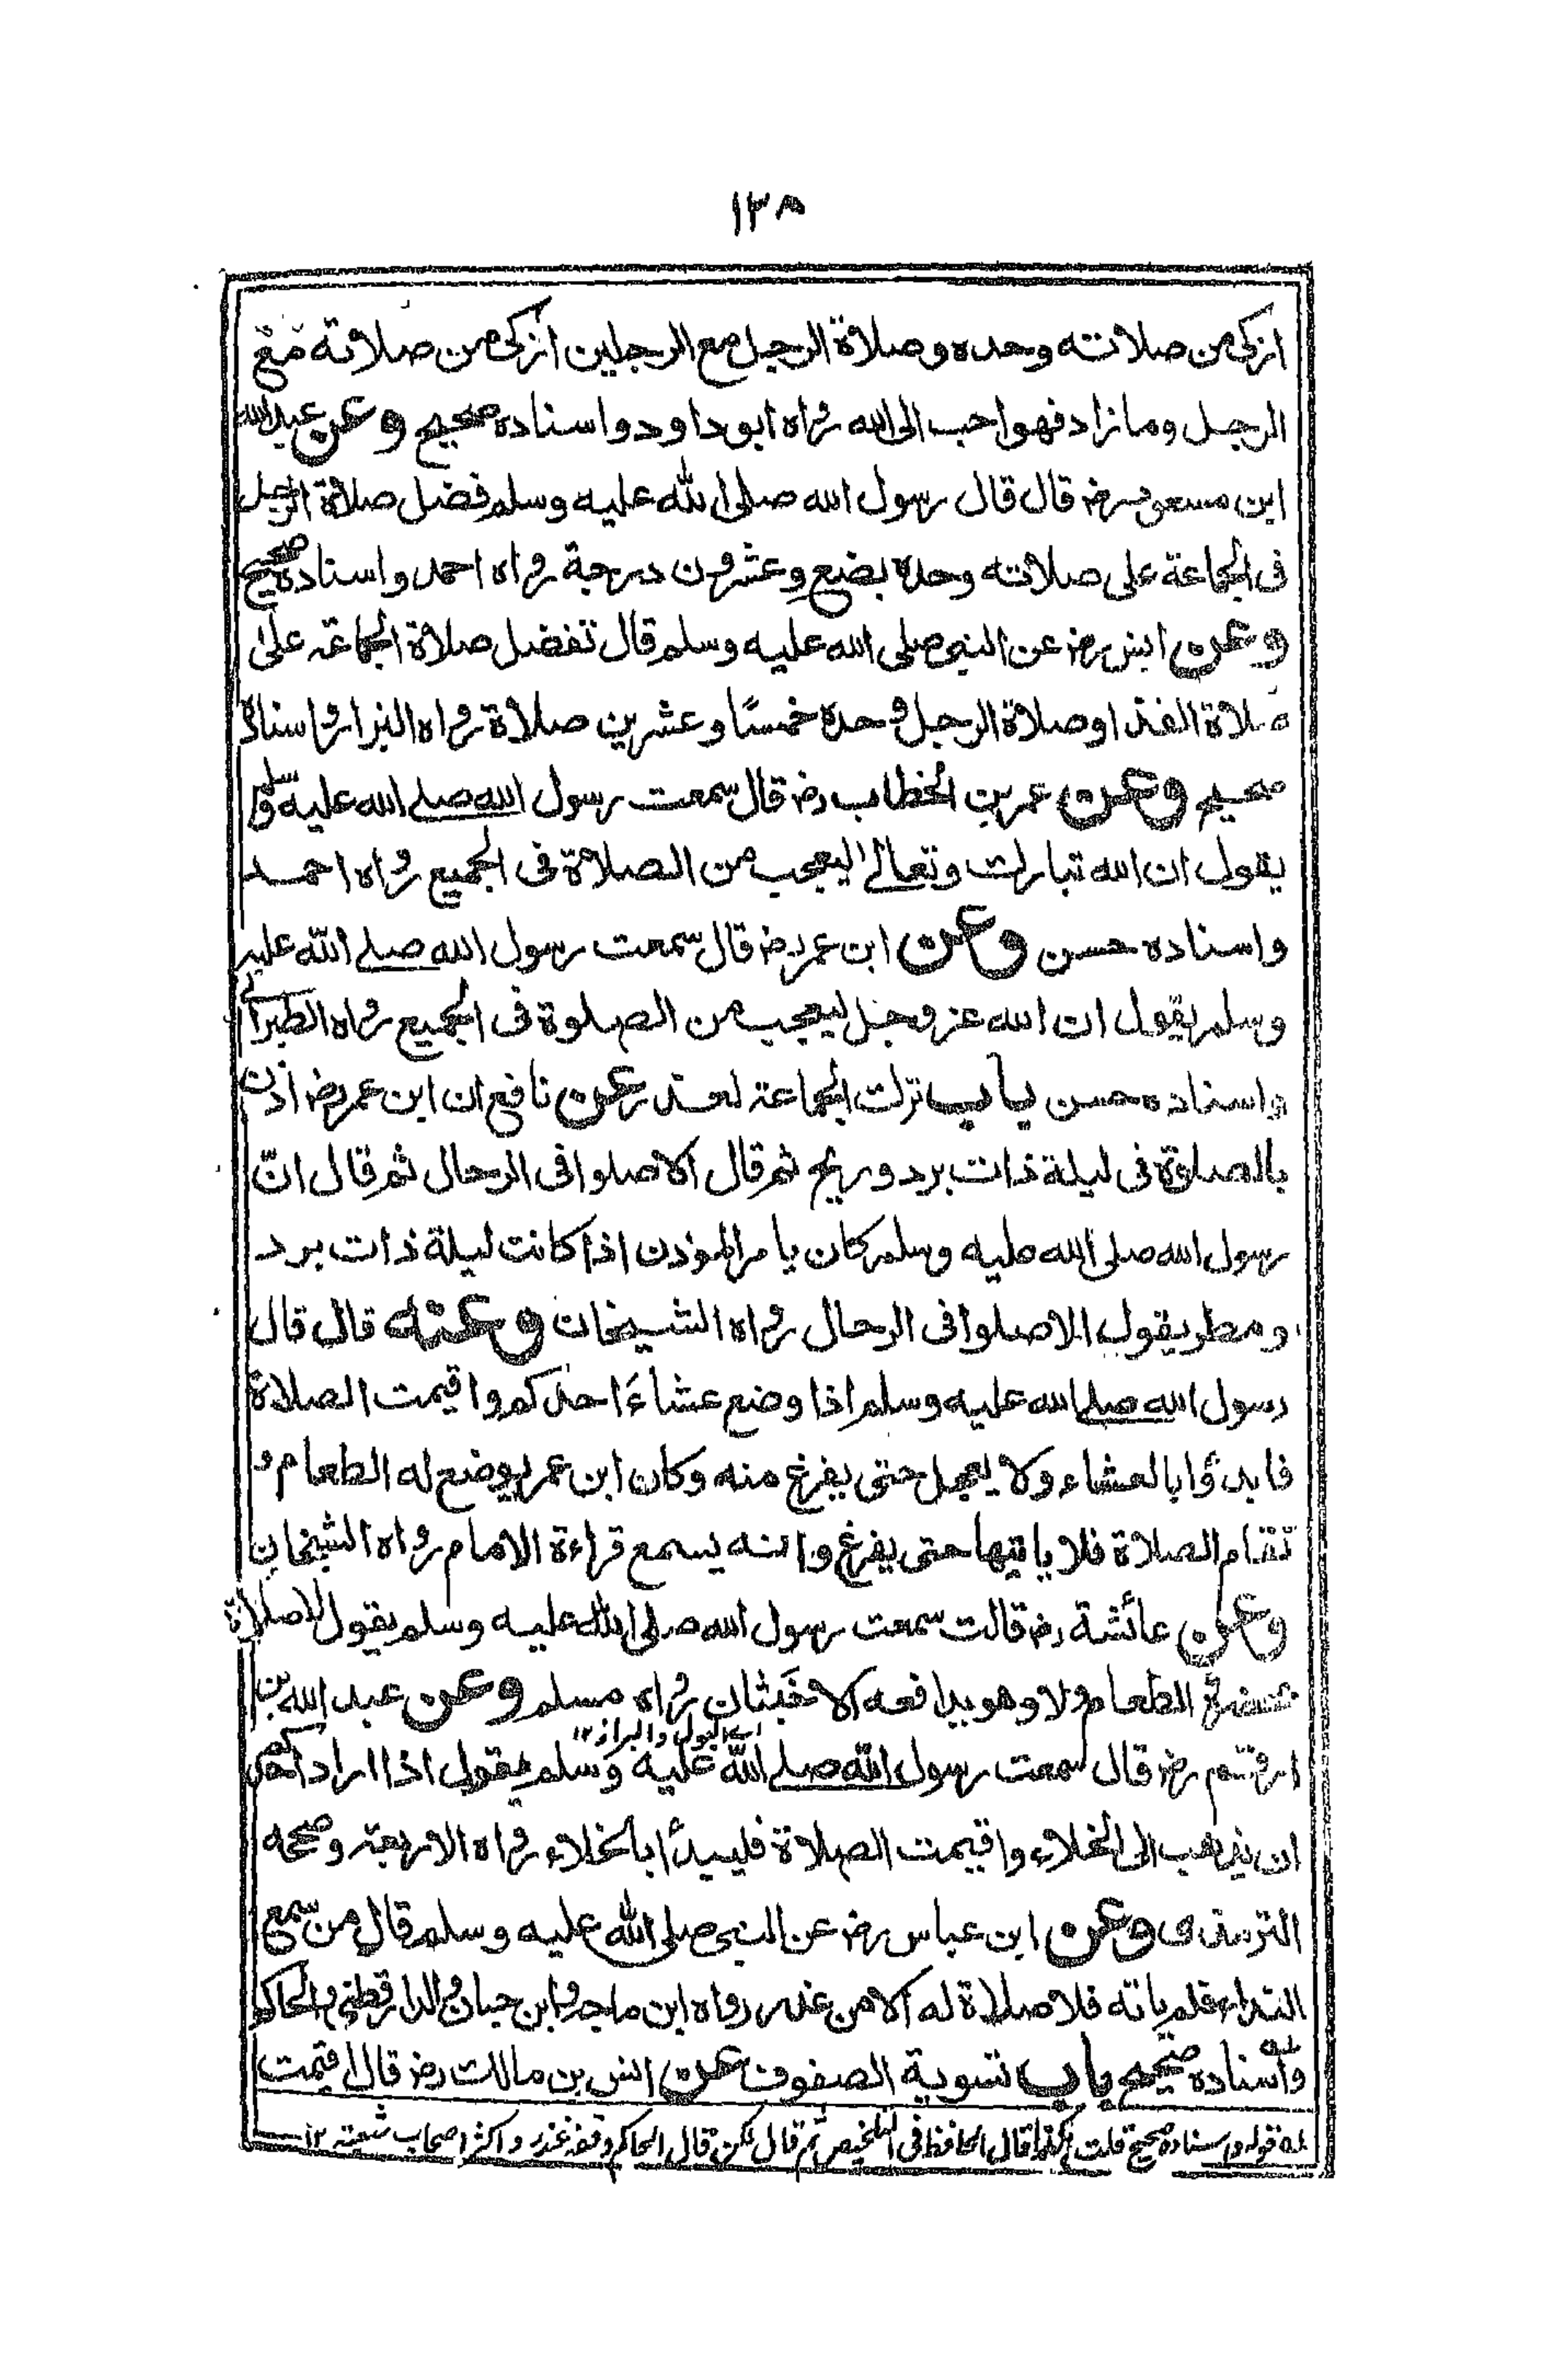 ١٣٨
ازكى من صلاته وحده وصلاة الرجل مع الرجلين ازكى من صلاته مع
الرجل وما زاد فهو احب الى الله رواه ابوداود واسناده صحيح وعن عبدالله
ابن مسعود رض قال قال رسول الله صلى الله عليه وسلم فضل صلاة الرجل
فى الجماعة على صلاته وحده بضع وعشرون درجة رواه احمد واسناده صحيح
وعن انس رض عن النبى صلى الله عليه وسلم قال تفضل صلاة الجماعة على
صلاة الفذ او صلاة الرجل وحده خمسًا وعشرين صلاة رواه البزار واسناده
صحيح وعن عمر بن الخطاب رض قال سمعت رسول الله صلے الله عليه وسلم
يقول ان الله تبارك وتعالے ليعجب من الصلاة فى الجميع رواه احمد
واسناده حسن وعن ابن عمر رض قال سمعت رسول الله صلے الله عليه
وسلم يقول ان الله عز وجل ليعجب من الصلوة فى الجميع رواه الطبرانى
واسناده حسن باب ترك الجماعة لعذر عن نافع ان ابن عمر رض اذن
بالصلوة فى ليلة ذات برد وريح ثم قال الا صلوا فى الرحال ثم قال انّ
رسول الله صلى الله عليه وسلم كان يامر المؤذن اذا كانت ليلة ذات برد
ومطر يقول الا صلوا فى الرحال رواه الشيخان وعنه قال قال
رسول الله صلے الله عليه وسلم اذا وضع عشاءَ احدكم واقيمت الصلاة
فابدؤا بالعشاء ولا يعجل حتى يفرغ منه وكان ابن عمر يوضع له الطعام و
تقام الصلاة فلا ياتيها حتى يفرغ وانه يسمع قراءة الامام رواه الشيخان
وعن عائشة رض قالت سمعت رسول الله صلى الله عليه وسلم يقول لا صلاة
بحضرة الطعام ولا وهو يدافعه الاخبثان رواه مسلم وعن عبد الله بن
اے البول والبراز ١٢
ارقم رض قال سمعت رسول الله صلے الله عليه وسلم يقول اذا اراد احدكم
ان يذهب الى الخلاء واقيمت الصلاة فليبدأ بالخلاء رواه الاربعة وصححه
الترمذى وعن ابن عباس رض عن النبى صلى الله عليه وسلم قال من سمع
النداء فلم ياته فلا صلاة له الا من عذر رواه ابن ماجه وابن حبان والدارقطنى والحاكم
واسناده صحيح باب تسوية الصفوف عن انس بن مالك رض قال اقيمت
له قوله واسناده صحيح قلت هكذا قال الحافظ فى التلخيص ثم قال لكن قال الحاكم وقفه غندر واكثر اصحاب شعبة ١٢